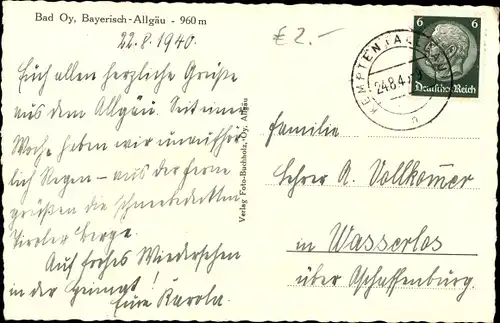 Bad Oy, Bayerisch-Allgäu - 960 m
22.8.1940.
Euch allen herzliche Grüße
aus dem Allgäu. Seit einer
Woche haben wir unaufhör-
lich Regen - aus der Ferne
grüßen die schneebedeckten
Tiroler Berge.
Auf frohes Wiedersehen
in der Heimat!
Eure Karola.
Verlag Foto-Buchholz, Oy, Allgäu
€ 2.-
KEMPTEN (ALLGÄU)
24.8.4
a
6 6
Deutsches Reich
Familie
Lehrer A. Vollkomer
in Wasserlos
über Aschaffenburg.